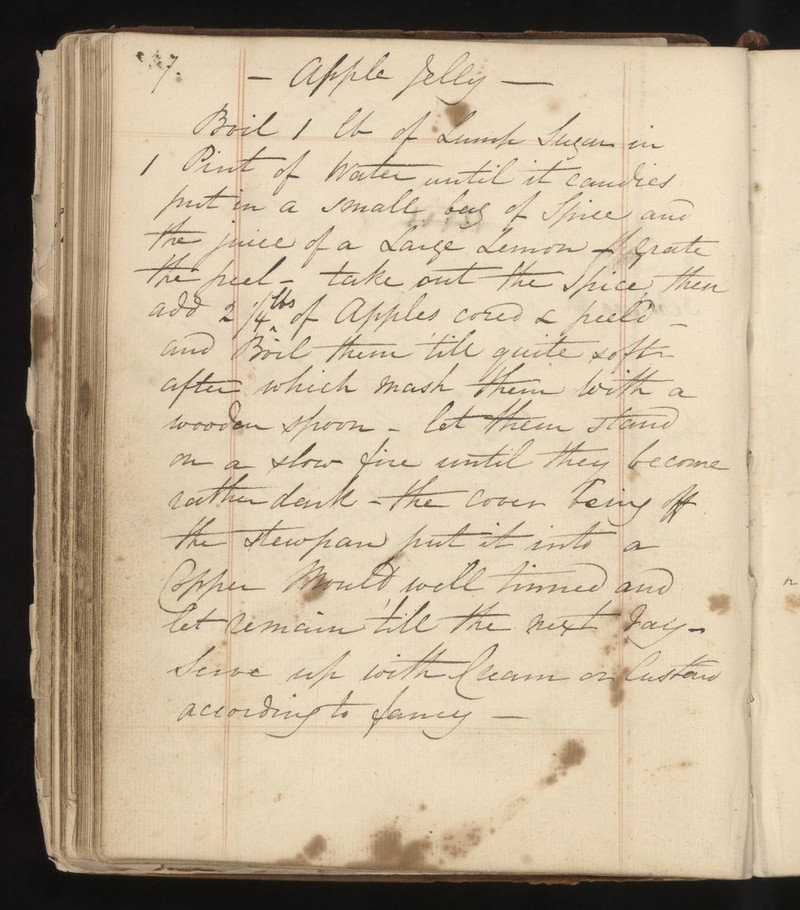 7. — Apple Jelly —
Boil 1 lb of Lump Sugar in
1 Pint of Water until it candies
put in a small bag of Spice and
the juice of a Large Lemon & grate
the peel - take out the Spice, then
add 2 1/4 lbs of Apples cored & peel'd -
and Boil them 'till quite soft
after which mash them with a
wooden spoon - let them stand
on a slow fire until they become
rather dark - the cover being off
the stewpan put it into a
Copper Mould well tinned and
let remain 'till the next day -
Serve up with Cream or Custard
according to fancy —